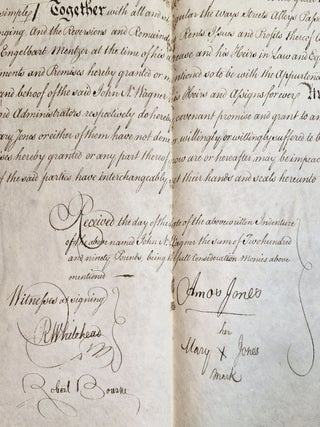 simple / Together with all and singular the Ways Streets Alleys Passages
nging. And the Reversions and Remainders Rents Issues and Profits thereof
Engelbert Mentze at the time of his decease and his Heirs in Law and
ments and Premises hereby granted or mentioned so to be with the Appurtenances
and behoof of the said John A. Wagner his Heirs and Assigns forever
and Administrators respectively do hereby covenant promise and grant to and
ary Jones or either of them have not done willingly or willingly suffered to be
ses hereby granted or any part thereof is are or hereafter may be
of the said parties have interchangeably set their hands and seals hereunto
Received the day of the date of the above written Indenture
of the above named John A. Wagner the sum of Two hundred
and ninety Pounds, being the full Consideration Monies above
mentioned
Witnesses at signing
R Whitehead
Robert Bourne
Amos Jones
her
Mary X Jones
mark